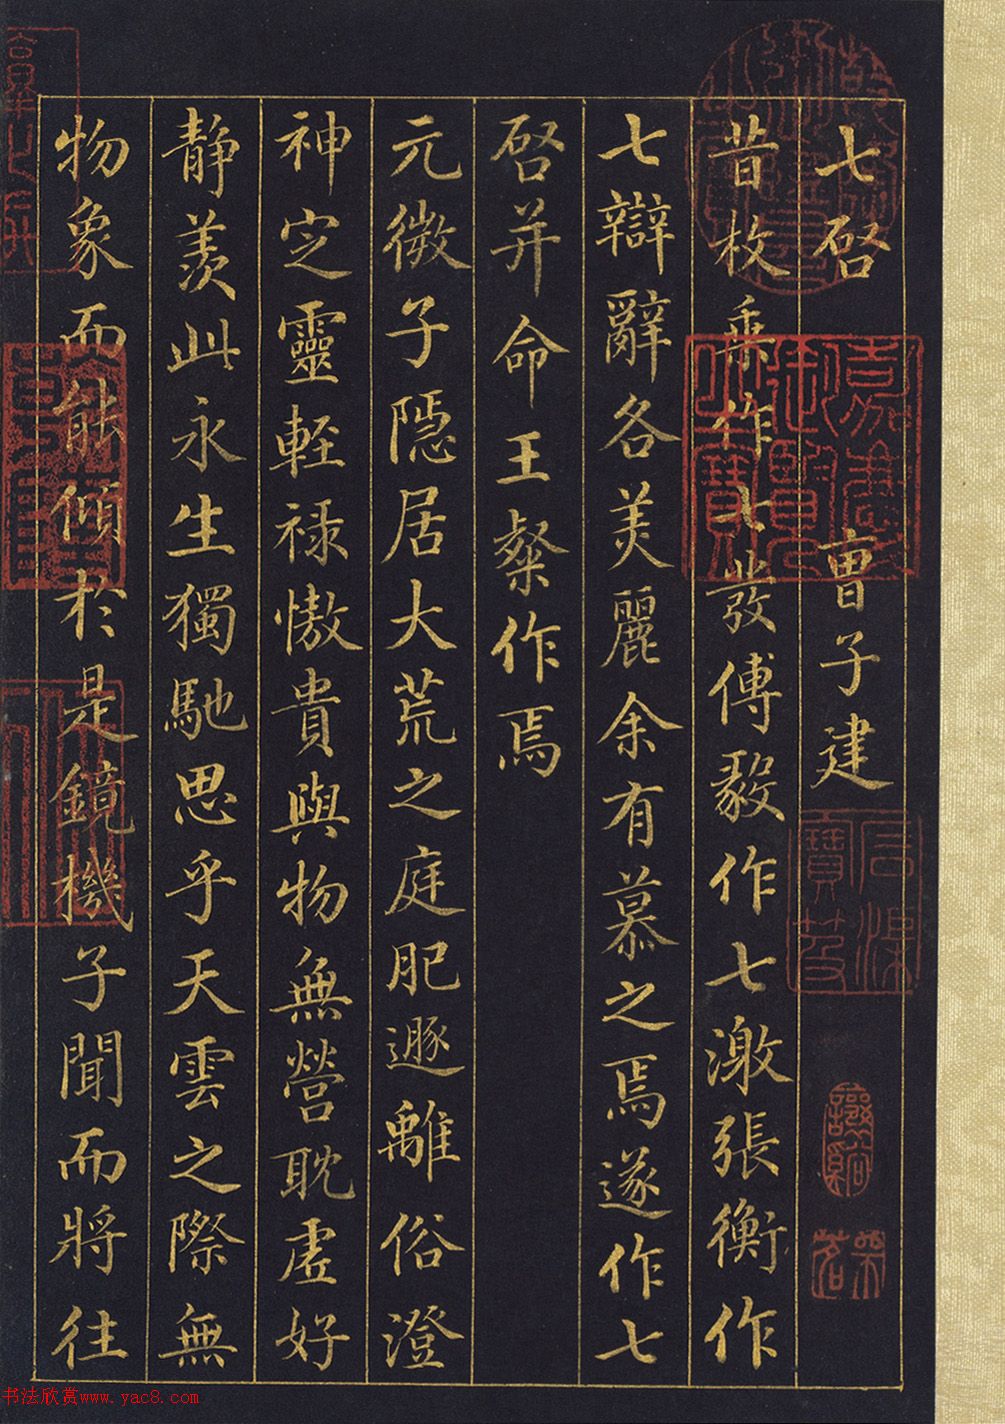 七啓 曹子建
昔枚乘作七發傅毅作七激張衡作
七辯辭各美麗余有慕之焉遂作七
啓并命王粲作焉
元微子隱居大荒之庭肥遯離俗澄
神定靈輕禄慠貴與物無營耽虛好
静羡此永生獨馳思乎天雲之際無
物象而能傾於是鏡機子聞而將往
嘉慶御覽之寶
石渠寶笈
书法欣赏www.yac8.com